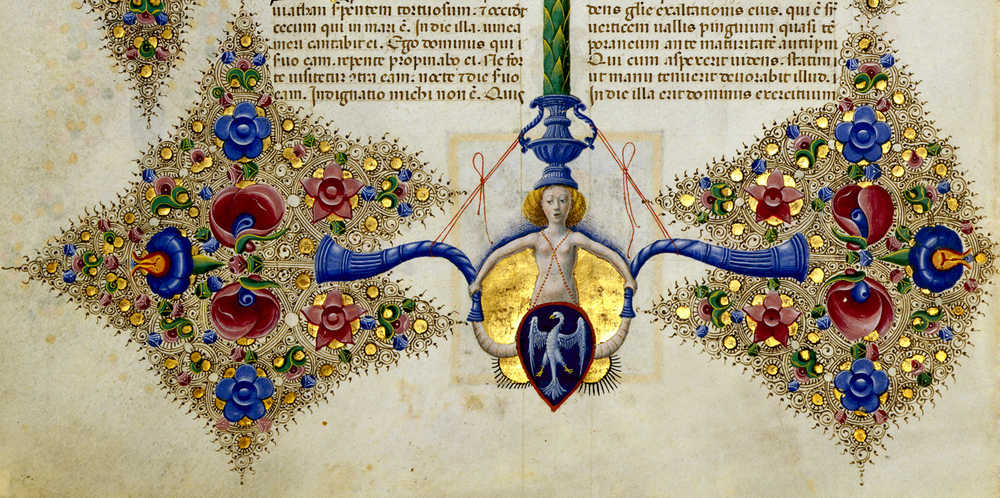 niathan spentem tortuosum. ⁊ occidet
cecum qui in mari ē. In die illa. uinea
meri cantabit ei. Ego dominus qui
suo eam. repente propinabo ei. Ne for
te uisitetur ꝯtra eam. nocte ⁊ die suo
eam. Indignatio michi non ē. Quis
dens glie exaltationis eius. qui ē
verticem uallis pinguium quasi tē
poraneum ante maturitatē autūpni
Qui cum aspexerit uidens. statim
ut manu tenuerit deuorabit illud.
In die illa erit dominus exercituum